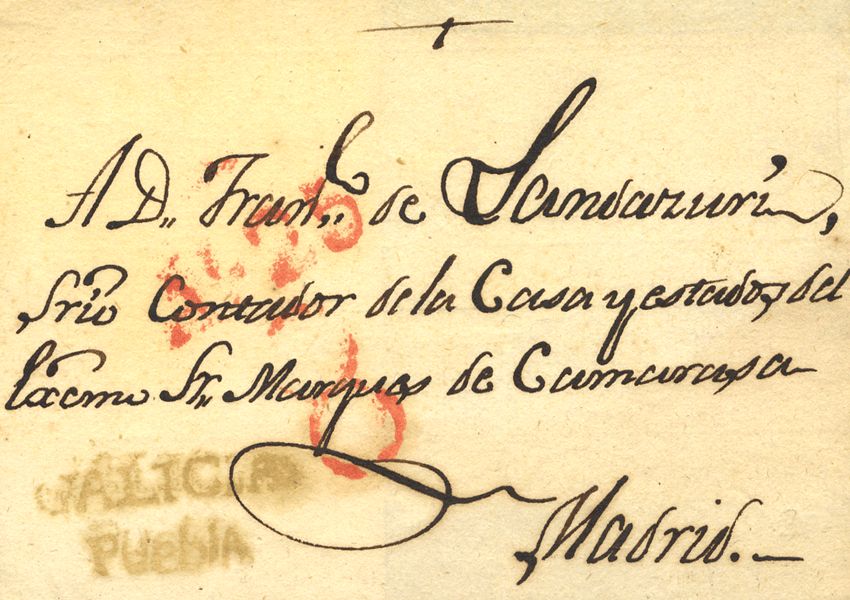 A D.ⁿ Fran.ᶜᵒ de Landazuri,
Srio Contador de la Casa y estados del
Excmo Sr. Marques de Camarasa
Madrid.
GALICIA
PUEBLA
6